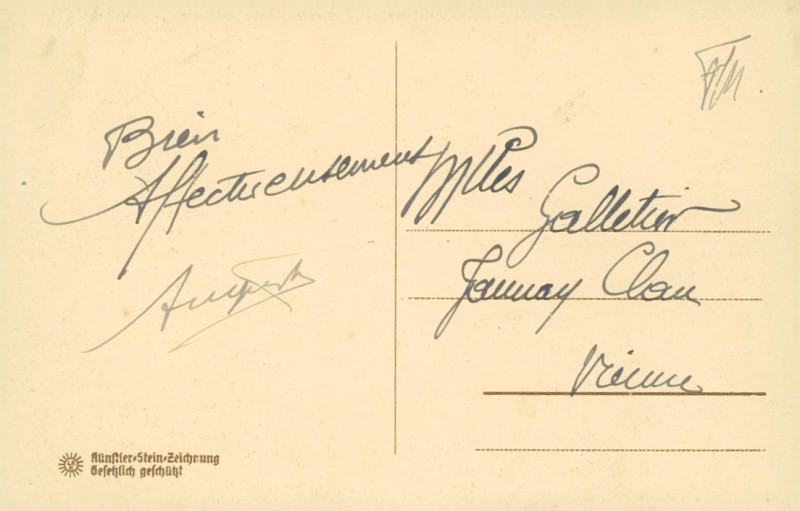 FM.
Bien
Affectueusement
Mlles
Galletier
Jaunay Clan
Vienne
Künstler-Stein-Zeichnung
Gesetzlich geschützt